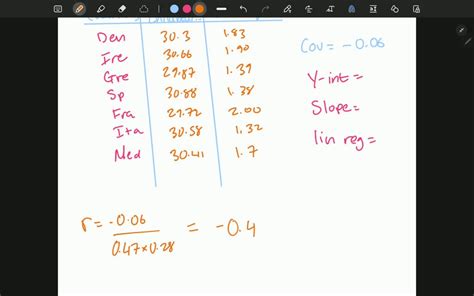 Den 30.3 1.83
Ire 30.66 1.90
Gre 29.87 1.39
Sp 30.88 1.38
Fra 29.72 2.00
Ita 30.58 1.32
Ned 30.41 1.7
Cov = -0.06
Y-int =
Slope =
lin reg =
r = -0.06 / 0.47 x 0.28 = -0.4